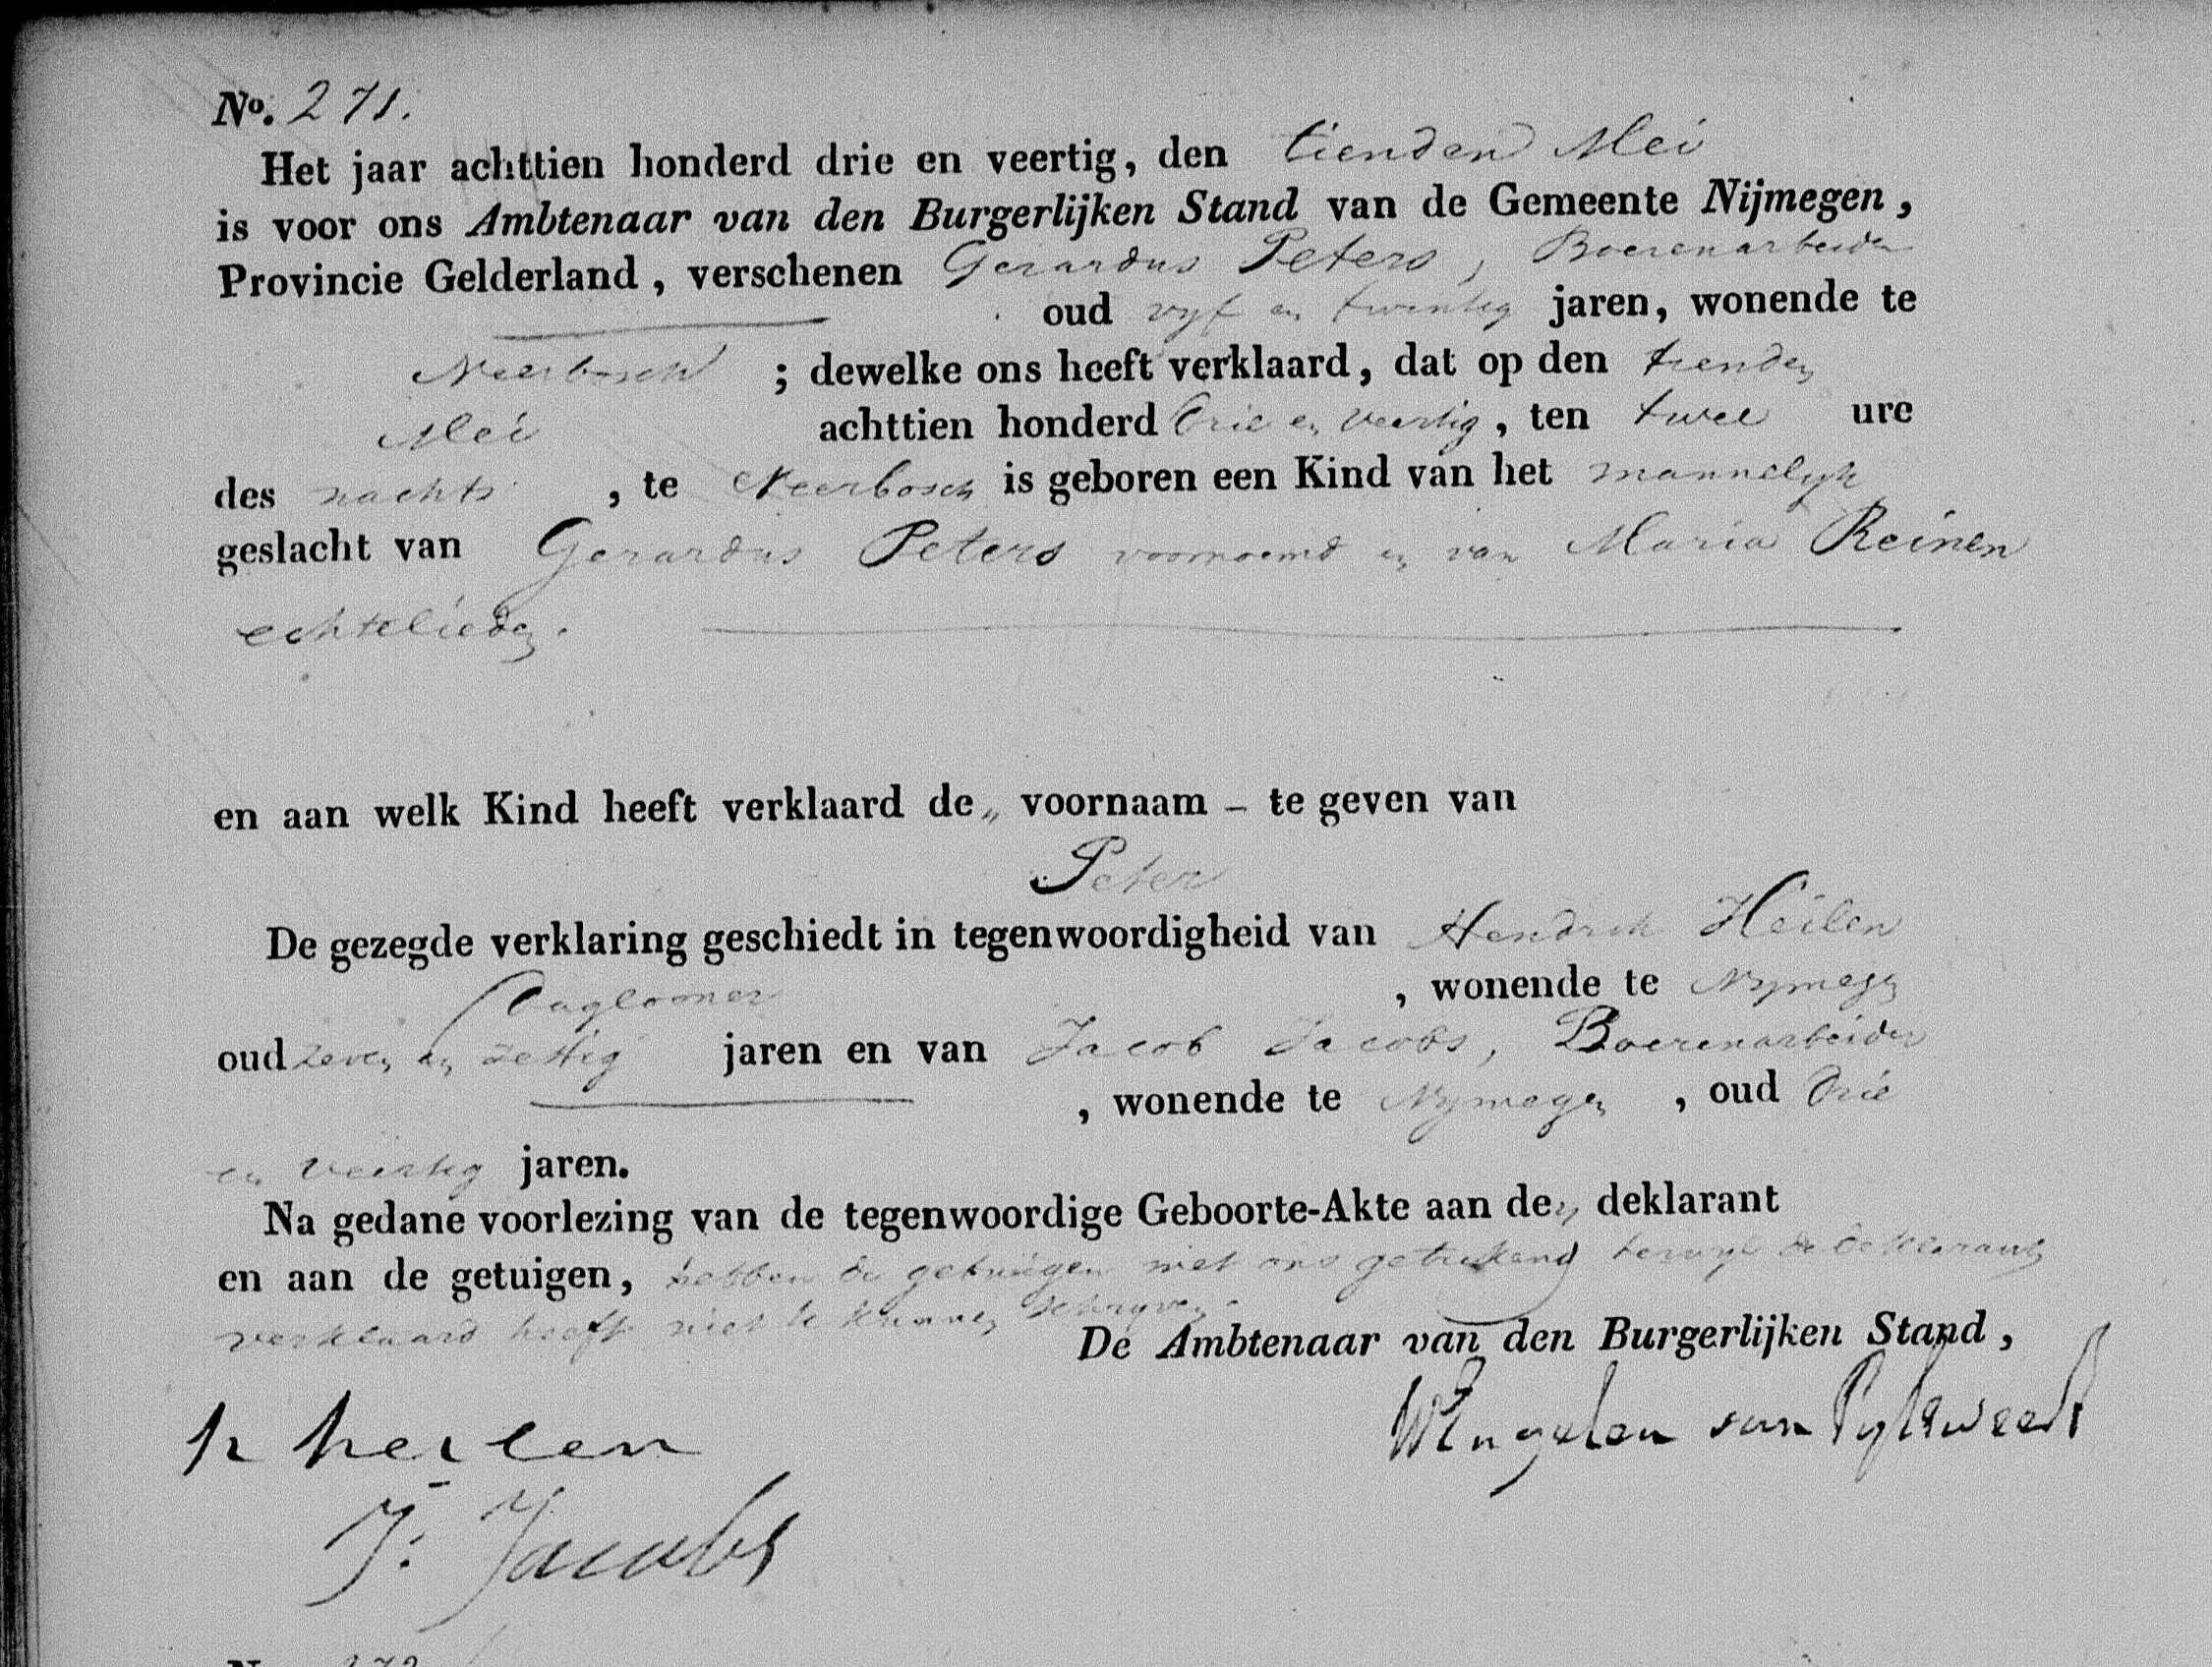 No. 271.
Het jaar achttien honderd drie en veertig, den tienden Mei
is voor ons Ambtenaar van den Burgerlijken Stand van de Gemeente Nijmegen,
Provincie Gelderland, verschenen Gerardus Peters, Boerenarbeider
oud vyf en twintig jaren, wonende te
Neerbosch ; dewelke ons heeft verklaard, dat op den tienden
Mei achttien honderd drie en veertig, ten twee ure
des nachts , te Neerbosch is geboren een Kind van het mannelyk
geslacht van Gerardus Peters voornoemd en van Maria Reinen
echtelieden.
en aan welk Kind heeft verklaard de „ voornaam – te geven van
Peter
De gezegde verklaring geschiedt in tegenwoordigheid van Hendrik Heilen
Daglooner , wonende te Nymegen
oud zeven en zestig jaren en van Jacob Jacobs, Boerenarbeider
, wonende te Nymegen , oud drie
en veertig jaren.
Na gedane voorlezing van de tegenwoordige Geboorte-Akte aan den deklarant
en aan de getuigen, hebben de getuigen met ons geteekend terwyl de deklarant
verklaard heeft niet te kunnen schryven.
De Ambtenaar van den Burgerlijken Stand,
h heilen
WEngelen van Pylsweert
J: Jacobs